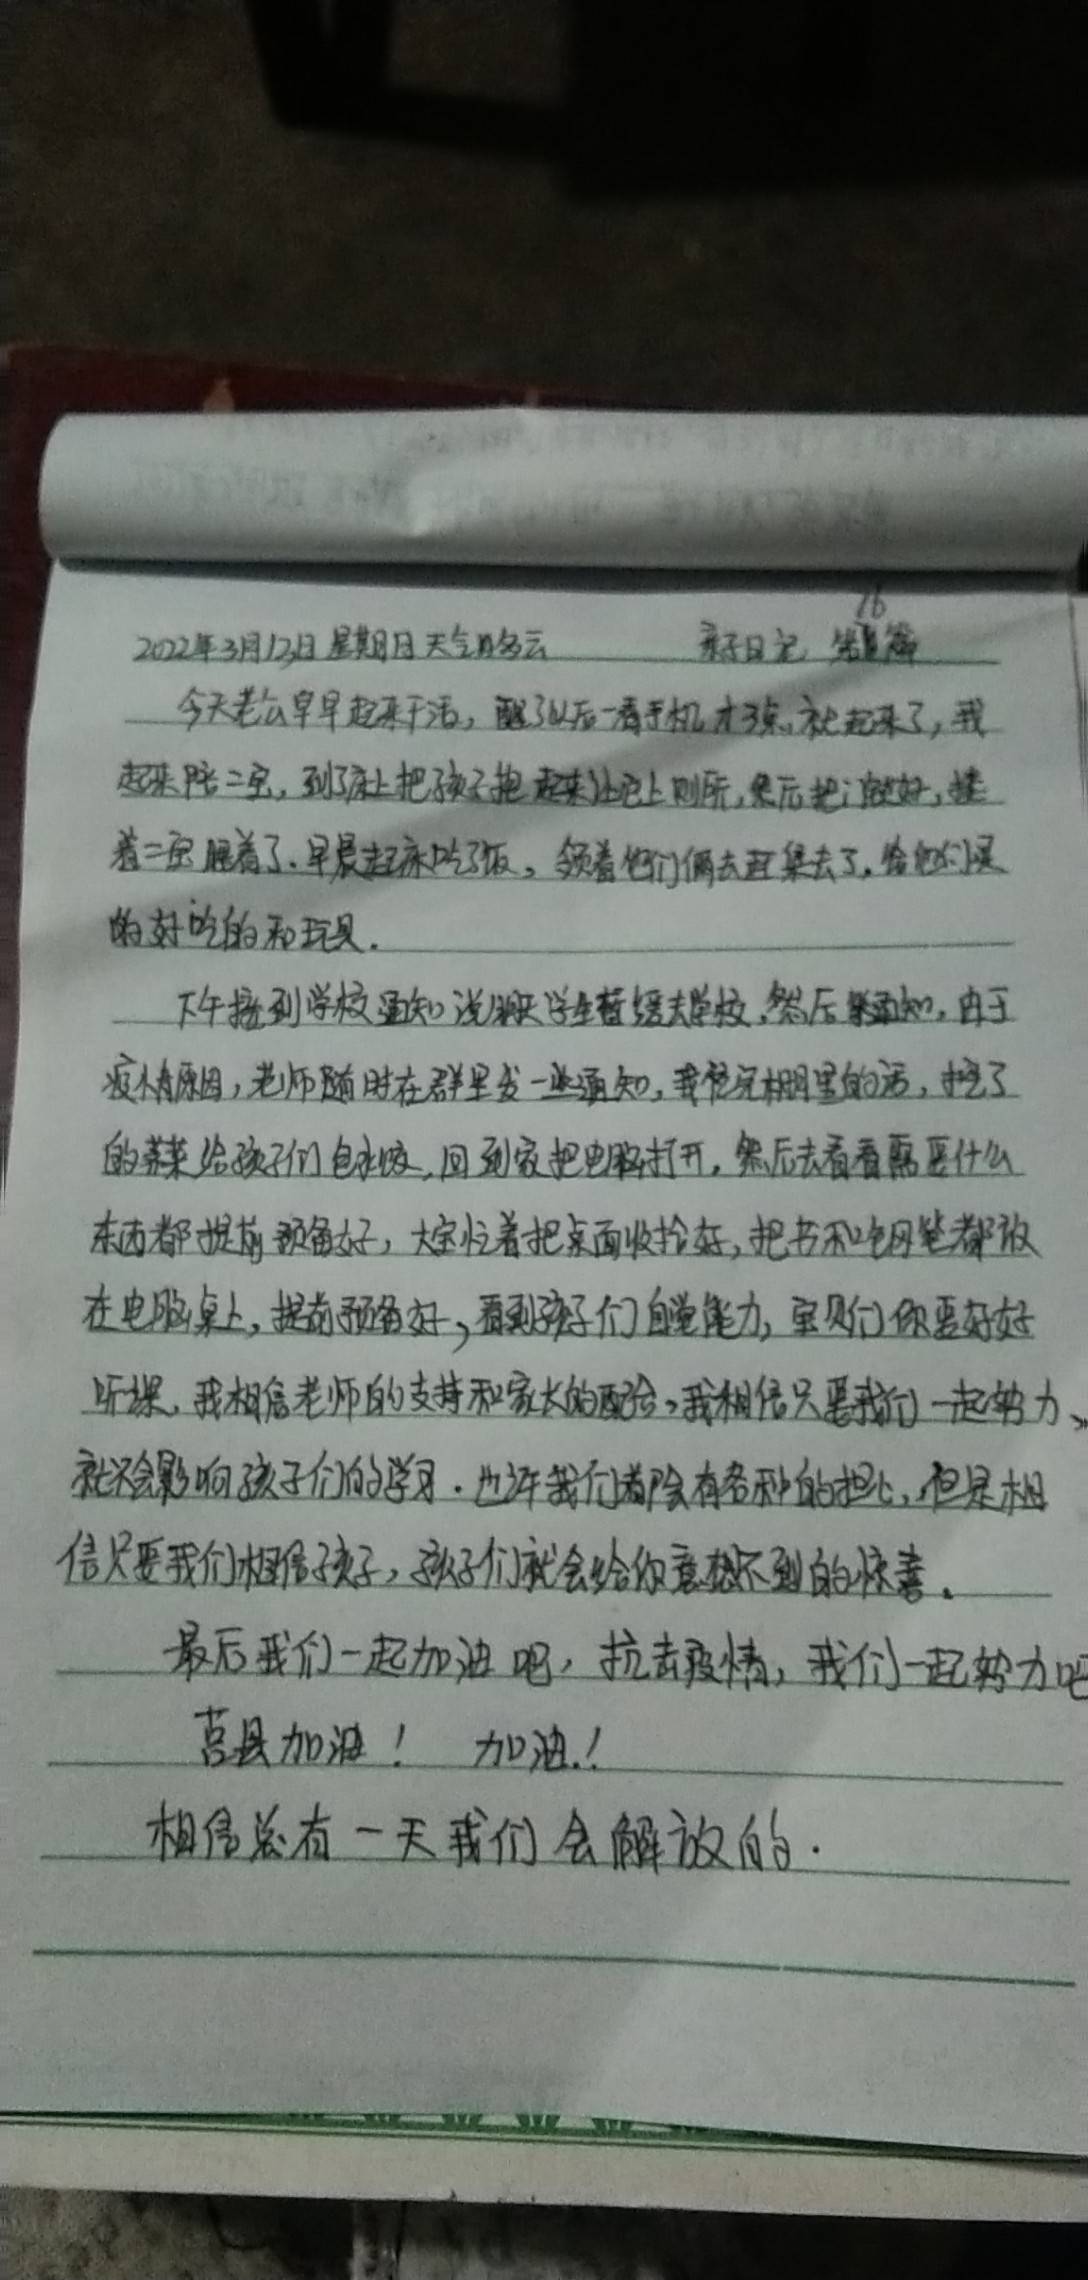 2022年3月13日 星期日 天气多云 亲子日记 第16篇
今天老公早早起来干活，醒了以后一看手机才3点，就起来了，我
起来陪二宝，到了床上把孩子抱起来让他上厕所，然后把门锁好，搂
着二宝睡着了。早晨起床吃了饭，领着他们俩去赶集去了，给他们买
的好吃的和玩具。
下午接到学校通知说 学生暂缓去学校，然后 通知，由于
疫情原因，老师随时在群里发一些通知，我忙完棚里的活，挖了
的荠菜给孩子们包水饺，回到家把电脑打开，然后去看看需要什么
东西都提前预备好，大宝忙着把桌面收拾好，把书和 笔都放
在电脑桌上，提前预备好，看到孩子们自觉能力，宝贝们你要好好
听课，我相信老师的支持和家长的配合，我相信只要我们一起努力，
就不会影响孩子们的学习。也许我们都会有各种的担心，但是相
信只要我们相信孩子，孩子们就会给你意想不到的惊喜。
最后我们一起加油吧，抗击疫情，我们一起努力吧
莒县加油！ 加油！
相信总有一天我们会解放的.